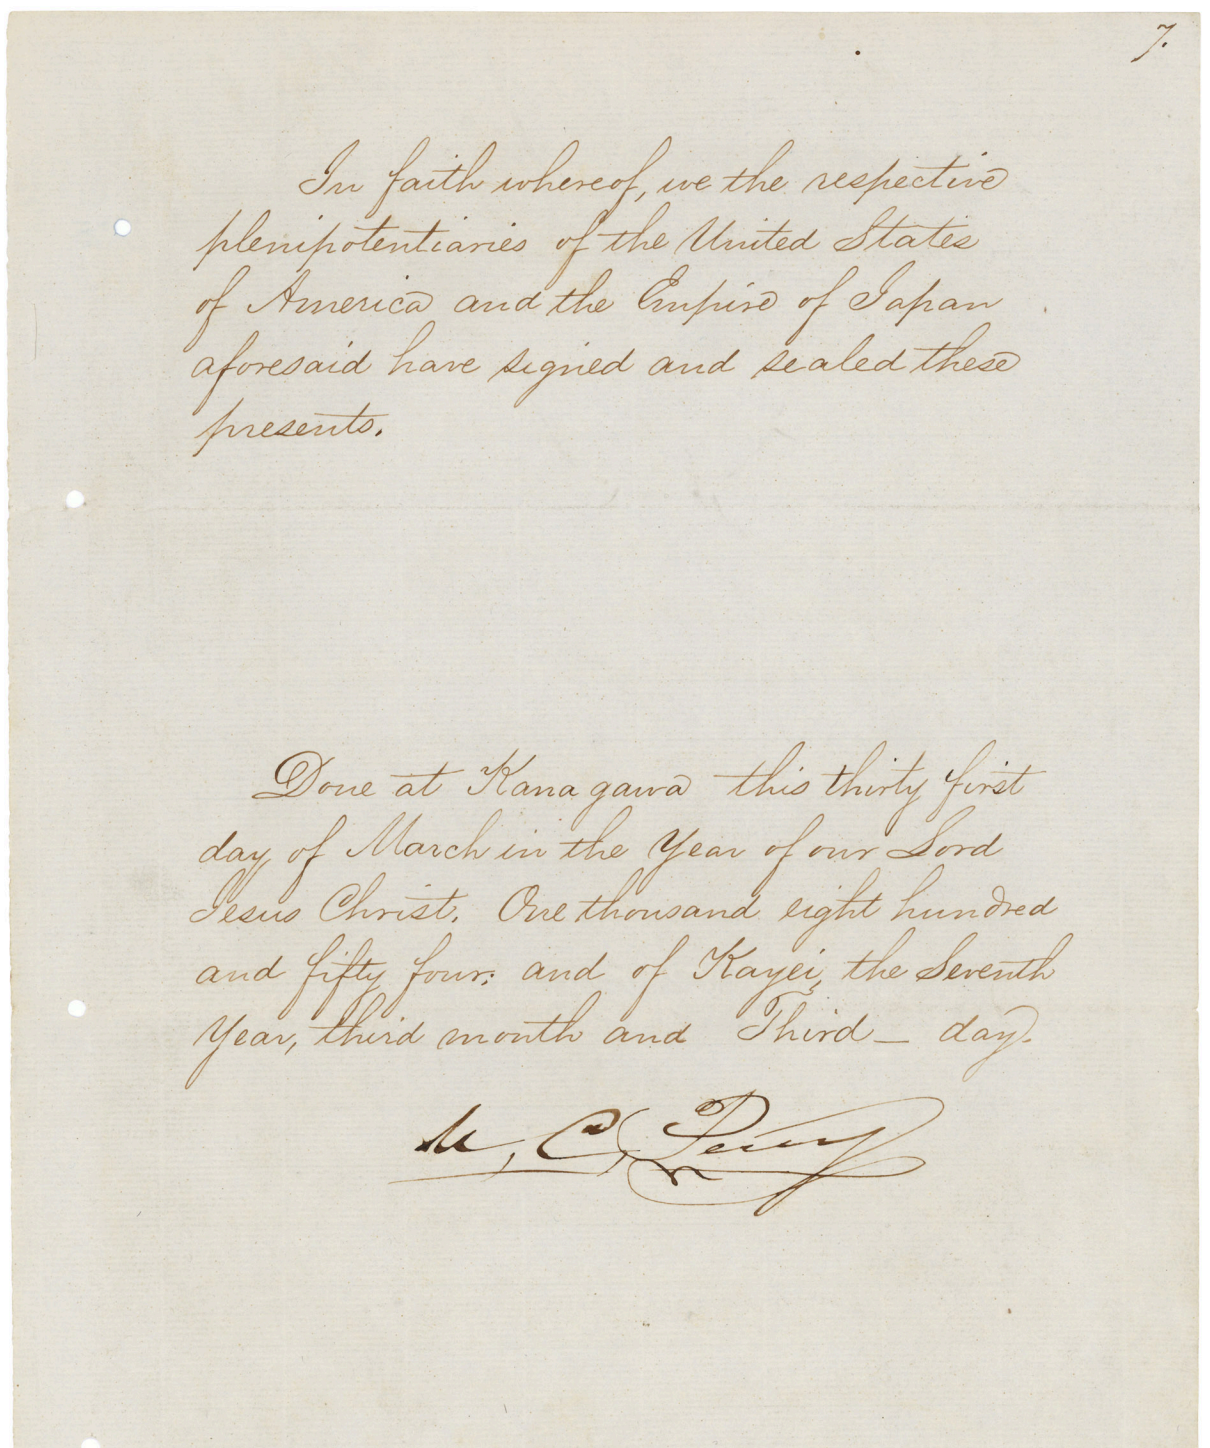 7.
In faith whereof, we the respective
plenipotentiaries of the United States
of America and the Empire of Japan
aforesaid have signed and sealed these
presents.
Done at Kanagawa this thirty first
day of March in the Year of our Lord
Jesus Christ. One thousand eight hundred
and fifty four; and of Kayei, the Seventh
Year, third month and Third — day.
M. C. Perry